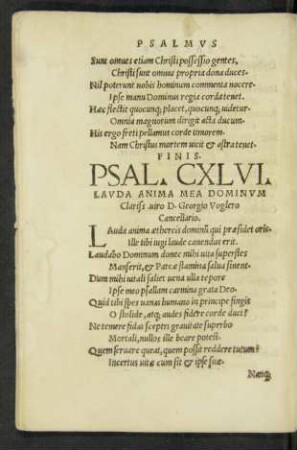 PSALMVS
Sunt omnes etiam Christi possessio gentes,
Christi sunt omnis propria dona duces.
Nil poterunt nobis hominum commenta nocere.
Ipse manu Dominus regia corda tenet.
Hac flectit quocunq; placet, quocunq; uidetur.
Omnia magnorum dirigit acta ducum.
His ergo freti pellamus corde timorem.
Nam Christus mortem uicit & astra tenet.
FINIS.
PSAL. CXLVI.
LAVDA ANIMA MEA DOMINVM
Clariss. uiro D. Georgio Voglero
Cancellario.
Lauda anima æthereis dominū qui præsidet
Ille tibi iugi laude canendus erit.
Laudabo Dominum donec mihi uita superstes
Manserit, & Parcæ stamina salua sinent.
Dum mihi uitali saliet uena ulla tepore
Ipse meo psallam carmina grata Deo.
Quid tibi spes uanas humano in principe fingis
O stolide, atq; audes fidere corde duci?
Ne temere fidas sceptri grauitate superbo
Mortali, nullos ille beare potest.
Quem seruare queat, quem possit reddere tutum?
Incertus uitæ cum sit & ipse suæ.
Namq;